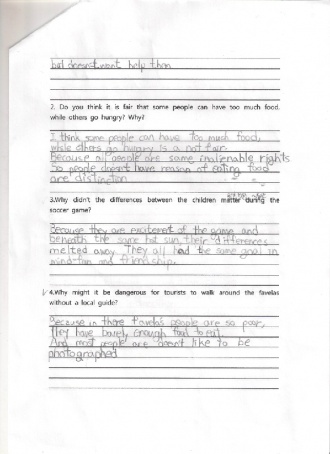 but doesn't want help than
2. Do you think it is fair that some people can have too much food.
while others go hungry? Why?
I think some people can have too much food,
while others go hungry is a not fair.
Because all people are same inalienable rights
So people doesn't have reason of eating food
are distinction
3.Why didn't the differences between the children matter during the
soccer game?
Because they are excitement of the game and
beneath the same hot sun, their differences
melted away. They all had the same goal in
mind-fun and friendship.
4.Why might it be dangerous for tourists to walk around the favelas
without a local guide?
Because in there favelas people are so poor,
They have barely enough food to eat.
And most people are doesn't like to be
photographed